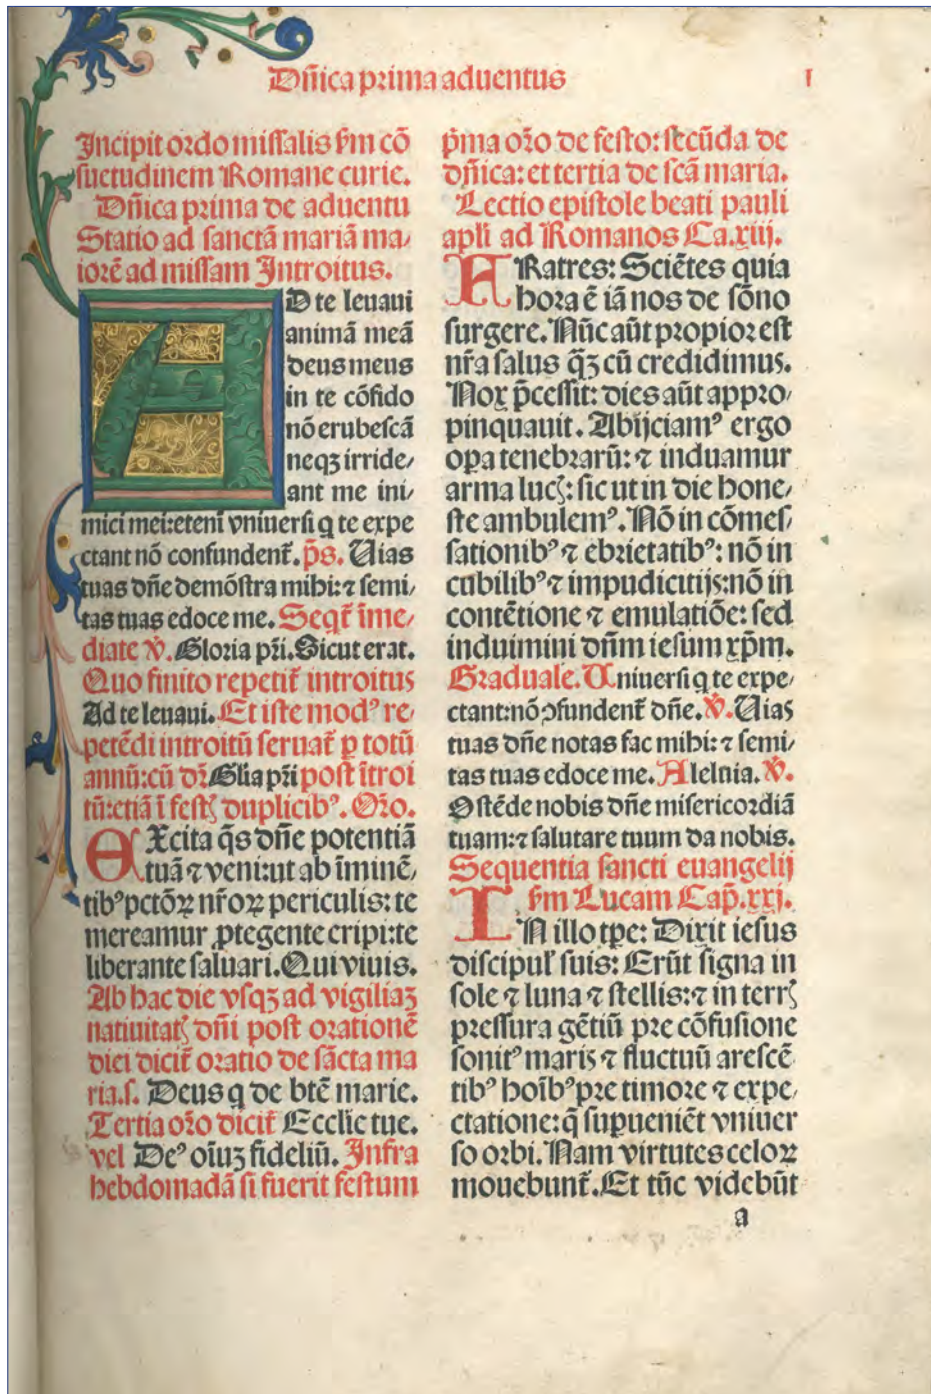 Dñica prima aduentus
I
Incipit ordo missalis ẜm cõ
suetudinem Romane curie.
Dñica prima de aduentu
Statio ad sanctã mariã ma/
iorẽ ad missam Introitus.
AD te leuaui
animã meã
deus meus
in te cõfido
nõ erubescã
neqꝫ irride/
ant me ini/
mici mei:eteni vniuersi q te expe
ctant nõ confundent᷑. p̃s. Uias
tuas dñe demõstra mihi:⁊ semi/
tas tuas edoce me. Seqt᷑ ĩme/
diate ℣. Gloria pr̃i. Sicut erat.
Quo finito repetit᷑ introitus
Ad te leuaui. Et iste modꝰ re/
petẽdi introitũ seruat᷑ p totũ
annũ:cũ dr̃ Glia pr̃i post ĩtroi
tũ:etiã ĩ festꝭ duplicibꝰ. Oro.
EXcita q̃s dñe potentiã
tuã ⁊ veni:ut ab ĩminẽ/
tibꝰ pctõꝝ nr̃oꝝ periculis: te
mereamur ꝓtegente eripi:te
liberante saluari. Qui viuis.
Ab hac die vsqꝫ ad vigiliaꝫ
natiuitatꝭ dñi post orationẽ
diei dicit᷑ oratio de sãcta ma
ria.s. Deus q de btẽ marie.
Tertia oro dicit᷑ Ecclie tue.
vel Deꝰ oĩuꝫ fideliũ. Infra
hebdomadã si fuerit festum
p̃ma oro de festo: secũda de
dñica: et tertia de scã maria.
Lectio epistole beati pauli
apli ad Romanos Ca.xiij.
FRatres: Sciẽtes quia
hora ẽ iã nos de sõno
surgere. Nũc aũt propior est
nr̃a salus q̃ꝫ cũ credidimus.
Nox p̃cessit: dies aũt appro/
pinquauit. Abijciamꝰ ergo
oꝑa tenebrarũ: ⁊ induamur
arma lucꝭ: sic ut in die hone/
ste ambulemꝰ. Nõ in cõmes/
sationibꝰ ⁊ ebrietatibꝰ: nõ in
cubilibꝰ ⁊ impudicitijs:nõ in
contẽtione ⁊ emulatiõe: sed
induimini dñm iesum xp̃m.
Graduale. Uniuersi q te expe/
ctant:nõ ꝯfundent᷑ dñe. ℣. Uias
tuas dñe notas fac mihi: ⁊ semi/
tas tuas edoce me. Alleluia. ℣.
Ostẽde nobis dñe misericordiã
tuam:⁊ salutare tuum da nobis.
Sequentia sancti euangelij
ẜm Lucam Cap̃.xxj.
IN illo tpe: Dixit iesus
discipul᷑ suis: Erũt signa in
sole ⁊ luna ⁊ stellis:⁊ in terrꝭ
pressura gẽtiũ pre cõfusione
sonitꝰ maris ⁊ fluctuũ arescẽ
tibꝰ hoĩbꝰ pre timore ⁊ expe/
ctatione:q̃ supueniẽt vniuer
so orbi. Nam virtutes celoꝝ
mouebunt᷑. Et tũc videbũt
a